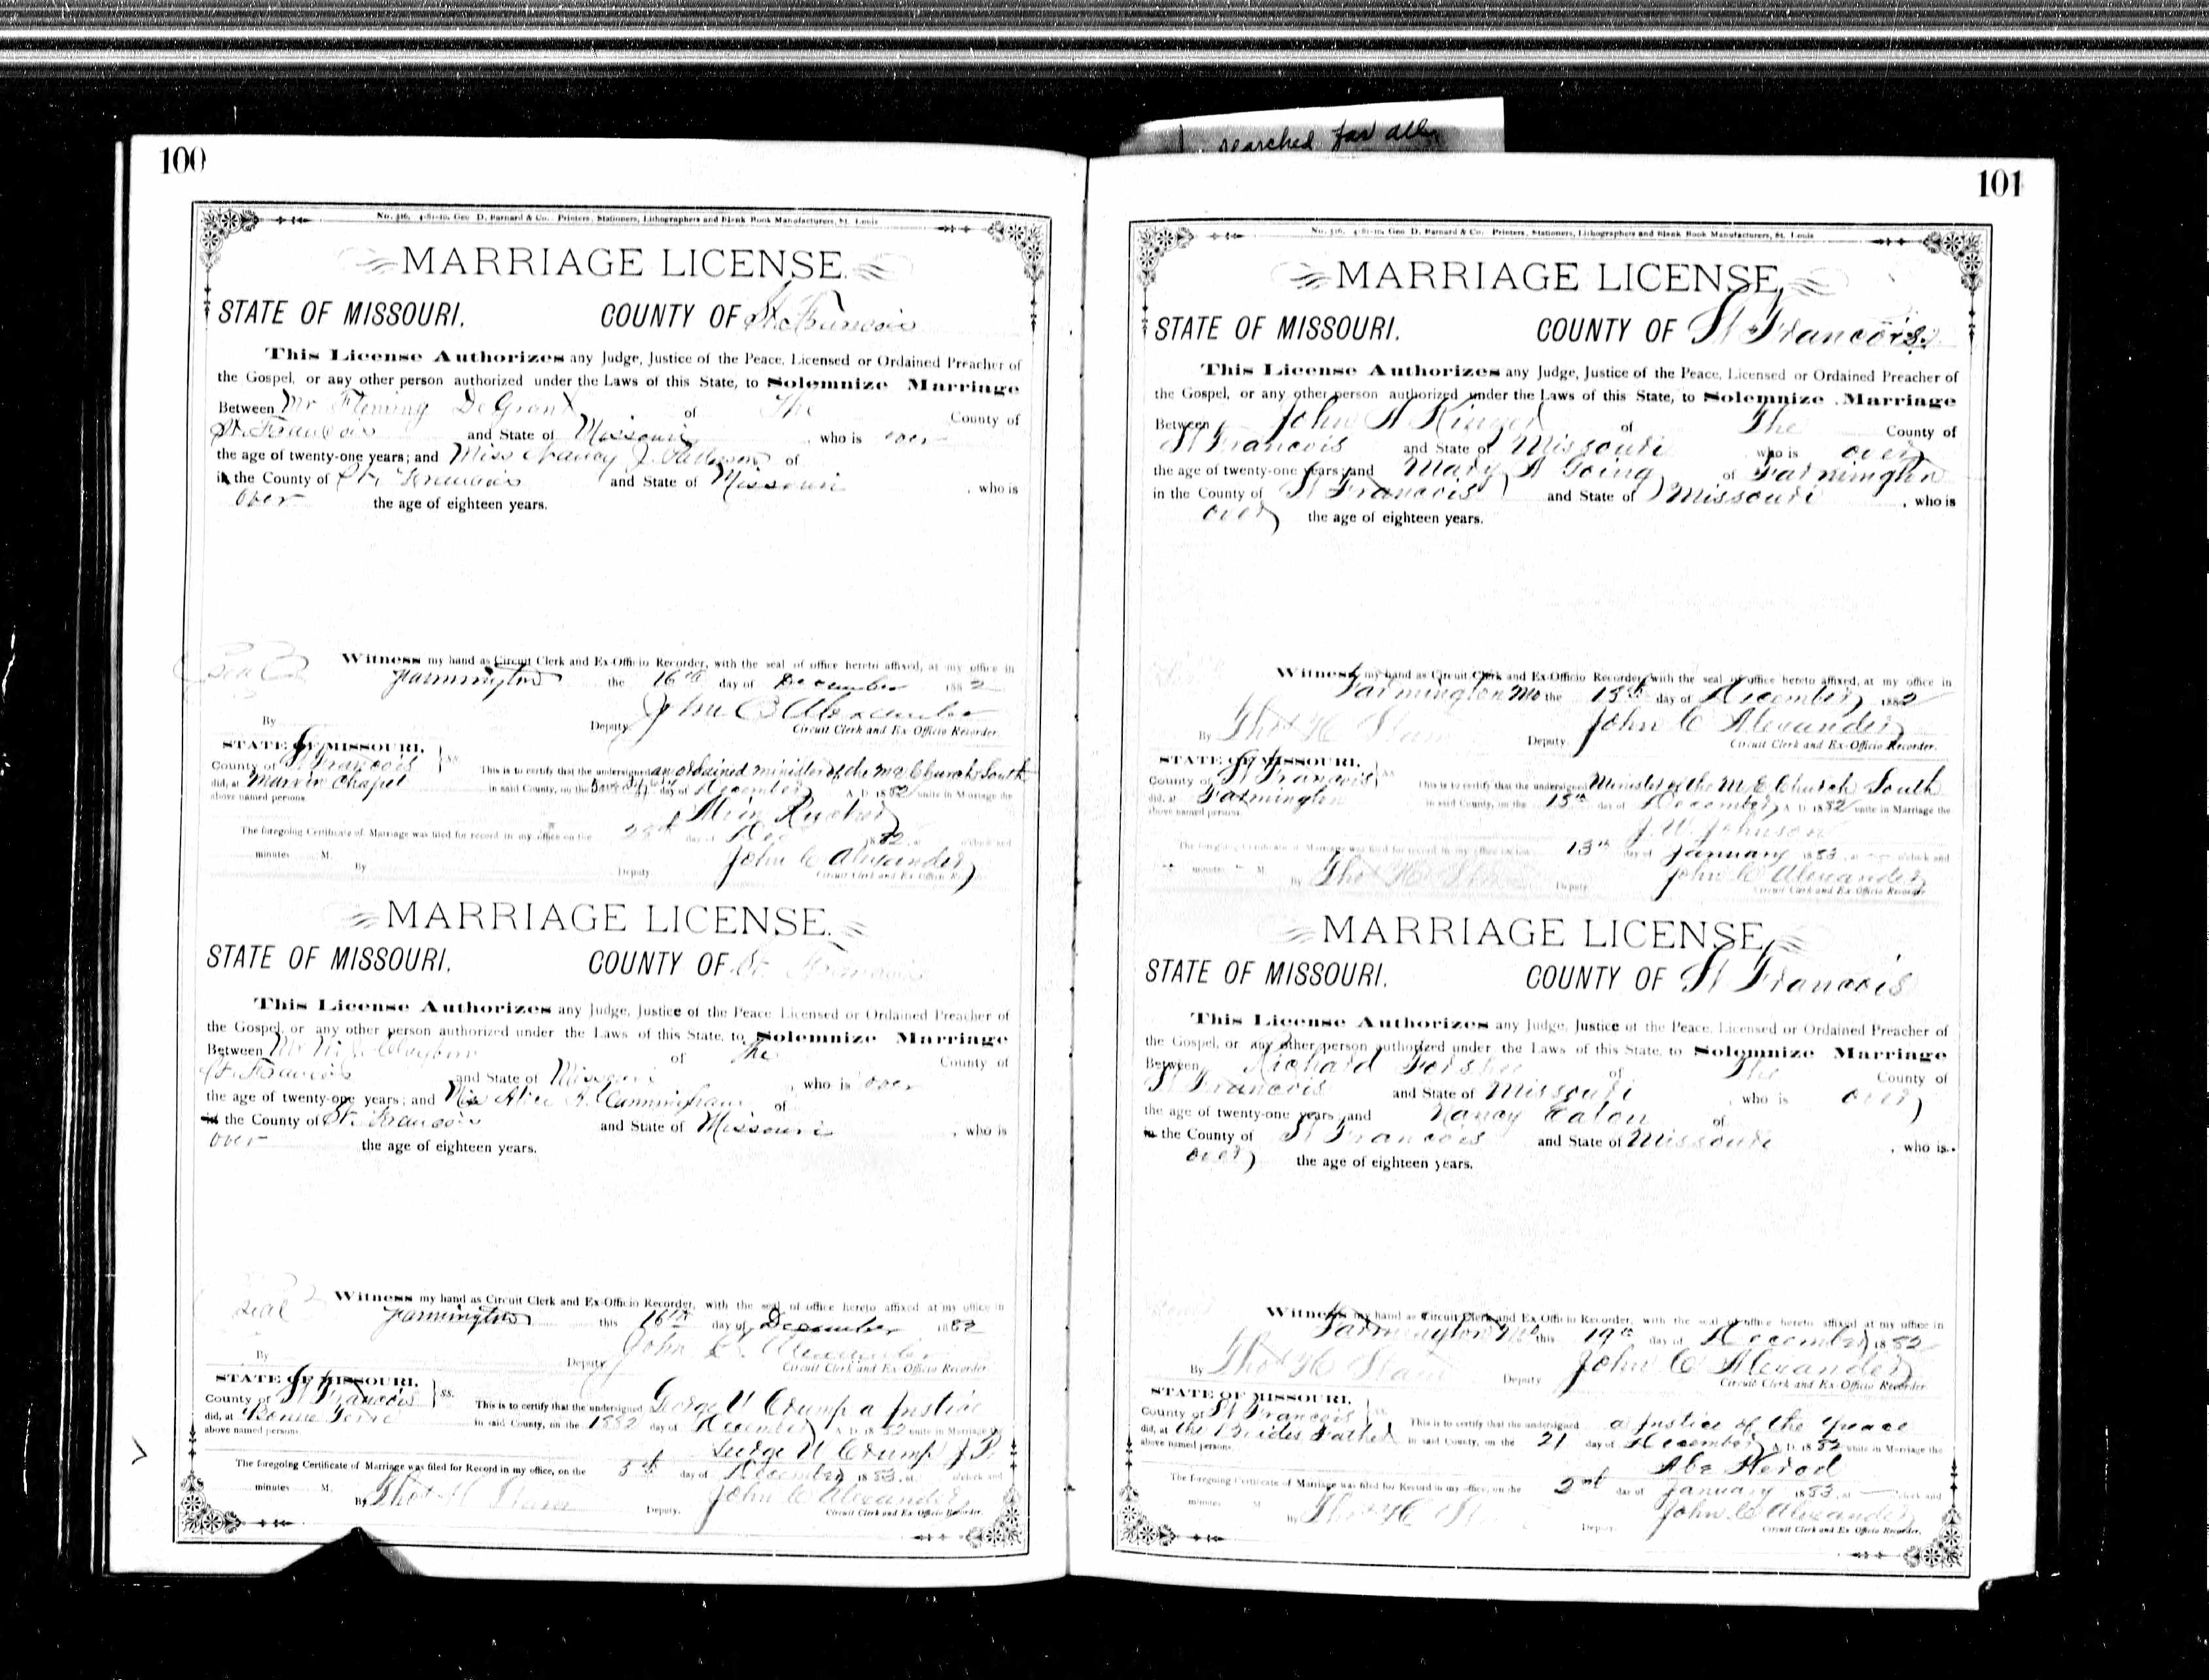 searched for all
100
No. 316. 4-81-10. Geo. D. Barnard & Co. Printers, Stationers, Lithographers and Blank Book Manufacturers, St. Louis
MARRIAGE LICENSE.
STATE OF MISSOURI. COUNTY OF St. Francois
This License Authorizes any Judge, Justice of the Peace, Licensed or Ordained Preacher of
the Gospel, or any other person authorized under the Laws of this State, to Solemnize Marriage
Between Mr Fleming DeGrant of The County of
St. Francois and State of Missouri, who is over
the age of twenty-one years; and Miss Nancy J. of
in the County of St. Francois and State of Missouri, who is
over the age of eighteen years.
Seal
Witness my hand as Circuit Clerk and Ex-Officio Recorder, with the seal of office hereto affixed, at my office in
Farmington the 16th day of December 1882
By Deputy. John C Alexander
Circuit Clerk and Ex Officio Recorder.
STATE OF MISSOURI,
County of St Francois ss. This is to certify that the undersigned an ordained minister of the M E Church South
did, at Marvin Chapel in said County, on the day of December A. D. 1882 unite in Marriage the
above named persons.
Rucker
The foregoing Certificate of Marriage was filed for record in my office on the day of Dec 1882, at o'clock and
minutes M. John C Alexander
By Deputy. Circuit Clerk and Ex Officio Recorder
MARRIAGE LICENSE.
STATE OF MISSOURI. COUNTY OF St. Francois
This License Authorizes any Judge, Justice of the Peace Licensed or Ordained Preacher of
the Gospel, or any other person authorized under the Laws of this State, to Solemnize Marriage
Between Mr Clayton of The County of
St. Francois and State of Missouri, who is over
the age of twenty-one years; and Miss Alice A. Cunningham of
in the County of St. Francois and State of Missouri, who is
over the age of eighteen years.
Seal
Witness my hand as Circuit Clerk and Ex-Officio Recorder, with the seal of office hereto affixed at my office in
Farmington this 16th day of December 1882
By Deputy John C. Alexander
Circuit Clerk and Ex-Officio Recorder.
STATE OF MISSOURI,
County of St Francois ss. This is to certify that the undersigned George W Crump a Justice
did, at Bonne Terre in said County, on the 1882 day of December A. D. 1882 unite in Marriage the
above named persons.
George W Crump J. P.
The foregoing Certificate of Marriage was filed for Record in my office, on the 5th day of 1883, at o'clock and
minutes M. John C Alexander
By Thos H Deputy. Circuit Clerk and Ex Officio Recorder.
101
No. 316. 4-81-10. Geo. D. Barnard & Co. Printers, Stationers, Lithographers and Blank Book Manufacturers, St. Louis
MARRIAGE LICENSE.
STATE OF MISSOURI. COUNTY OF St Francois
This License Authorizes any Judge, Justice of the Peace, Licensed or Ordained Preacher of
the Gospel, or any other person authorized under the Laws of this State, to Solemnize Marriage
Between John of The County of
St Francois and State of Missouri who is over
the age of twenty-one years; and Mary A Going of Farmington
in the County of St Francois and State of Missouri, who is
over the age of eighteen years.
Witness my hand as Circuit Clerk and Ex-Officio Recorder, with the seal of office hereto affixed, at my office in
Farmington Mo the 13th day of December 1882
By Thos H Deputy. John C Alexander
Circuit Clerk and Ex-Officio Recorder.
STATE OF MISSOURI,
County of St Francois ss. This is to certify that the undersigned Minister of the M E Church South
did, at Farmington in said County, on the 13th day of December A. D. 1882 unite in Marriage the
above named persons.
J. W. Johnson
The foregoing Certificate of Marriage was filed for record in my office on the 13th day of January 1883, at o'clock and
minutes M. John C Alexander
By Thos H Deputy. Circuit Clerk and Ex Officio Recorder
MARRIAGE LICENSE.
STATE OF MISSOURI. COUNTY OF St Francois
This License Authorizes any Judge, Justice of the Peace, Licensed or Ordained Preacher of
the Gospel, or any other person authorized under the Laws of this State, to Solemnize Marriage
Between Richard of The County of
St Francois and State of Missouri, who is over
the age of twenty-one years and Nancy Eaton of
in the County of St Francois and State of Missouri, who is
over the age of eighteen years.
Witness my hand as Circuit Clerk and Ex-Officio Recorder, with the seal of office hereto affixed at my office in
Farmington Mo this 19th day of December 1882
By Thos H Deputy John C Alexander
Circuit Clerk and Ex-Officio Recorder
STATE OF MISSOURI,
County of St Francois ss. This is to certify that the undersigned a Justice of the Peace
did, at the Brides Father in said County, on the 21 day of December A. D. 1882 unite in Marriage the
above named persons.
Abe Herod
The foregoing Certificate of Marriage was filed for Record in my office, on the 2nd day of January 1883, at o'clock and
minutes M John C Alexander
By Thos H Deputy. Circuit Clerk and Ex Officio Recorder.